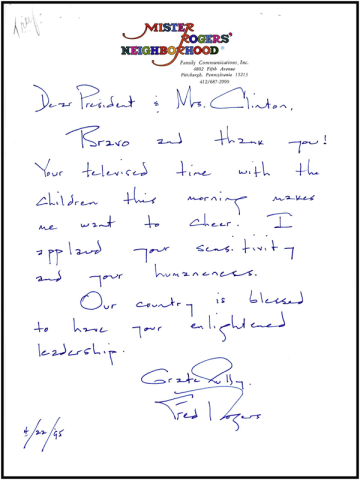 MISTER
ROGERS'
NEIGHBORHOOD®
Family Communications, Inc.
4802 Fifth Avenue
Pittsburgh, Pennsylvania 15213
412/687-2990
Dear President & Mrs. Clinton,
Bravo and thank you!
Your televised time with the
children this morning makes
me want to cheer! I
applaud your sensitivity
and your humaneness.
Our country is blessed
to have your enlightened
leadership.
Gratefully,
Fred Rogers
4/22/95